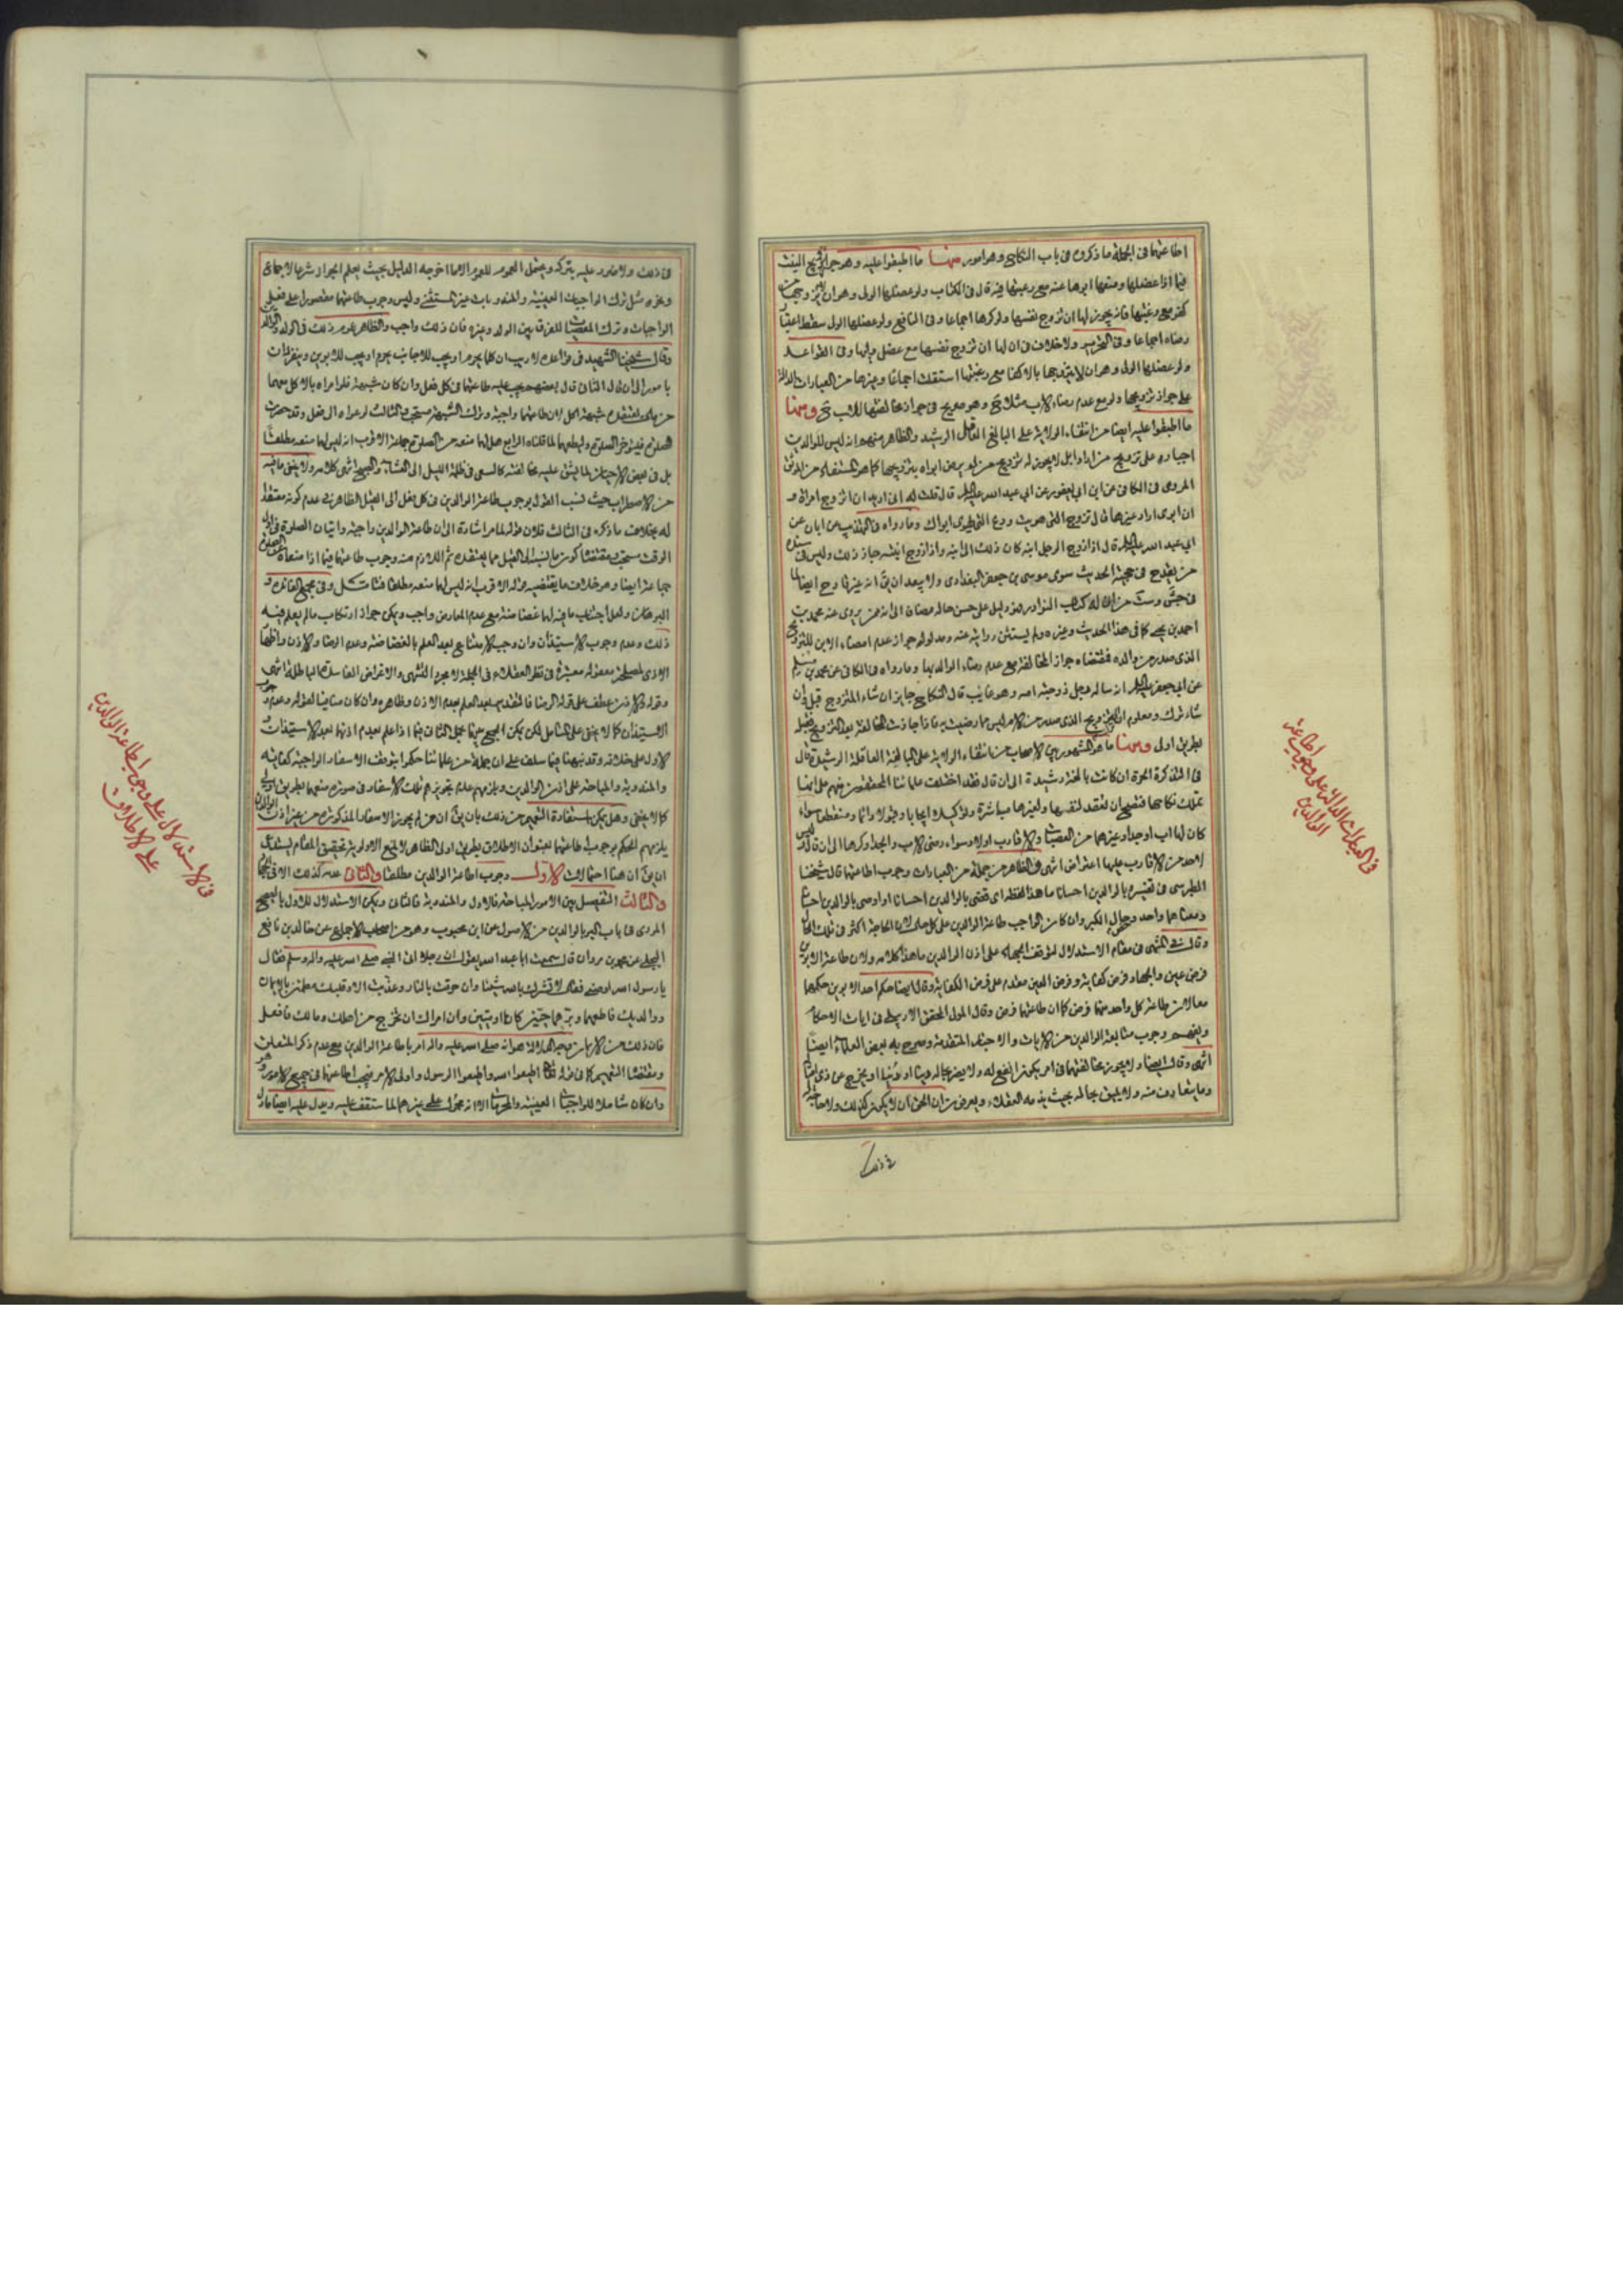 اطاعتهما فى الجملة ما ذكروه فى باب النكاح وهو امور منها ما اطبقوا عليه وهو جواز تزويج البنت
فيما اذا عضلها ومنعها ابوها عنه مع رغبتها فيه قال فى الكتاب ولو عضلها الولى وهو ان لا يزوجها من
كفو مع رغبتها فانه يجوز لها ان تزوج نفسها ولو كرها اجماعا وفى النافع ولو عضلها الولى سقط اعتبار
رضاه اجماعا وفى التحرير ولا خلاف فى ان لها ان تزوج نفسها مع عضل وليها وفى القواعد
ولو عضلها الولى وهو ان لا يزوجها بالاكفاء مع رغبتها استقلت اجماعا وغيرها من العبارات الدالة
على جواز تزويجها ولو مع عدم رضاء الاب مثلا وهو صريح فى جواز مخالفتها للاب ومنها
ما اطبقوا عليه ايضا من انتفاء الولاية على البالغ العاقل الرشيد والظاهر منهم انه ليس للوالدين
اجباره على تزويج من ارادا بل لا يجوز له تزويج من لم يرض ابواه بتزويجها كما هو المستفاد من الموثق
المروى فى الكافى عن ابن ابى يعفور عن ابى عبد الله عليه السلام قال قلت له انى اريد ان اتزوج امراة و
ان ابوى ارادا غيرها قال تزوج التى هويت ودع التى يهوى ابواك وما رواه فى التهذيب عن ابان عن
ابى عبد الله عليه السلام قال اذا زوج الرجل ابنه كان ذلك الى ابنه واذا زوج ابنته جاز ذلك وليس فى سنده
من يقدح فى حجية الحديث سوى موسى بن جعفر البغدادى ولا يبعد ان يق انه غير قادح ايضا لما
فى جش وست من ان له كتاب النوادر دليل على حسن حاله مضافا الى انه ممن يروى عنه محمد بن
احمد بن يحيى كما فى هذا الحديث وغيره ولم يستثن روايته عنه ومدلوله جواز عدم امضاء الابن للتزويج
الذى صدر من والده فمقتضاه جواز المخالفة مع عدم رضاء الوالد بها وما رواه فى الكافى عن محمد بن مسلم
عن ابى جعفر عليه السلام انه ساله رجل زوجته امه وهو غايب قال النكاح جايز ان شاء المتزوج قبل وان
شاء ترك ومعلوم ان التزويج الذى صدر من الام ليس مما رضيت به فاذا جازت المخالفة بعد التزويج فقبله
بطريق اولى ومنها ما هو المشهور بين الاصحاب من انتفاء الولاية على البالغة العاقلة الرشيدة قال
فى التذكرة الحرة ان كانت بالغة رشيدة الى ان قال فقد اختلف علمائنا المحققون منهم على انها
تملك نكاحها فتصح ان تعقد لنفسها ولغيرها مباشرة وتوكيلا ايجابا وقبولا دائما ومنقطعا سواء
كان لها اب او جد او غيرهما من العصبات والاقارب او لا وسواء رضى الاب والجد او كرها الى ان قال وليس
لاحد من الاقارب عليها اعتراض انتهى والظاهر من جملة من العبارات وجوب اطاعتهما قال شيخنا
الطبرسى فى تفسيره بالوالدين احسانا ما هذا لفظه اى قضى بالوالدين احسانا او اوصى بالوالدين احسانا
ومعناهما واحد وخص حال الكبر وان كان الواجب طاعة الوالدين على كل حال لان الحاجة اكثر فى تلك الحال
وقال فى المنتهى فى مقام الاستدلال لتوقف الجهاد على اذن الوالدين ما هذا كلامه ولان طاعة الابوين
فرض عين والجهاد فرض كفاية وفرض العين مقدم على فرض الكفاية وقال ايضا حكم احد الابوين حكمهما
معا لان طاعة كل واحد منهما فرض كما ان طاعتهما فرض وقال المولى المحقق الاردبيلى فى ايات الاحكام
ويفهم وجوب متابعة الوالدين من الايات والاخبار المتقدمة وصرح به بعض العلماء ايضا
انتهى وقال ايضا ولا يجوز مخالفتهما فى امر يكون انفع له ولا يضر بحاله دينا او دنيا او يخرج عن زى امثاله
وما يتعارف منه ولا يليق بحاله بحيث يذمه العقلاء ويعرفون ان الحق ان لا يكون كذلك ولا حاجة له
فى ذلك
فى العبارات الدالة على وجوب اطاعة
الوالدين
فى ذلك ولا ضرر عليه بتركه ويحتمل العموم للعموم الا ما اخرجه الدليل بحيث يعلم الجواز شرعا لاجماع
وغيره مثل ترك الواجبات العينية والمندوبات غير المستثنى وليس وجوب طاعتهما مقصورا على فعل
الواجبات وترك المعصيات للفرق بين الولد وغيره فان ذلك واجب والظاهر عموم ذلك فى الولد والوالدين
وقال شيخنا الشهيد فى قواعده لا ريب ان كلما يحرم او يجب للاجانب يحرم او يجب للابوين وينفردان
بامور الى ان قال الثانى قال بعضهم يجب عليه طاعتهما فى كل فعل وان كان شبهة فلو امراه بالاكل معهما
من مال يعتقده شبهة اكل لان طاعتهما واجبة وترك الشبهة مستحب الثالث لو دعواه الى فعل وقد حضرت
الصلوة فليؤخر الصلوة وليطعهما لما قلناه الرابع هل لهما منعه من الصلوة جماعة الاقرب انه ليس لهما منعه مطلقا
بل فى بعض الاحيان لما يشق عليه مخالفته كالسعى فى ظلمة الليل الى العشاء والصبح انتهى كلامه ولا يخفى ما فيه
من الاضطراب حيث نسب القول بوجوب طاعة الوالدين فى كل فعل الى القيل الظاهر فى عدم كونه معتقدا
له بخلاف ما ذكره فى الثالث فلان قوله لما مر اشارة الى ان طاعة الوالدين واجبة واتيان الصلوة فى اول
الوقت مستحب مقتضاه كون ما نسبه الى القيل مما يعتقده ثم اللازم منه وجوب طاعتهما فيما اذا منعاه عن الصلوة
جماعة ايضا وهو خلاف ما يقتضيه قوله الاقرب انه ليس لهما منعه مطلقا فتامل وفى مجمع الفائدة و
البرهان ولعل اجتناب ما فيه لها غضاضة مع عدم المعارض واجب ويمكن جواز ارتكاب ما لم يعلم فيه
ذلك وعدم وجوب الاستيذان وان وجب الامتناع بعد العلم بالغضاضة وعدم الرضا والاذن واظهار
الاذى لمصلحة معقولة معتبرة فى نظر العقلاء فى الجملة لا مجرد التشهى والاغراض الفاسدة الباطلة انتهى
وقوله والاذن عطف على قوله الرضا فالتقدير بعد العلم بعدم الاذن وظاهره وان كان منافيا لقوله وعدم وجوب
الاستيذان كما لا يخفى على المتامل لكن يمكن الجمع بينهما بحمل الثانى فيما اذا علم بعدم اذنهما بعد الاستيذان و
الاول على خلافه وقد نبهنا فيما سلف على ان جملة من علمائنا حكموا بتوقف الاسفار الواجبة كفاية
والمندوبة والمباحة على اذن الوالدين ويلزمهم عدم تجويزهم تلك الاسفار فى صورة منعهما بطريق اولى
كما لا يخفى وهل يمكن استفادة التعميم من ذلك بان يق ان من لم يجوز الاسفار المذكورة من غير اذن الوالدين
يلزمهم الحكم بوجوب طاعتهما بعنوان الاطلاق بطريق اولى الظاهر لا لمنع الاولوية تحقيق المقام يستدعى
ان يق ان هنا احتمالات الاول وجوب اطاعة الوالدين مطلقا والثانى عدمه كذلك الا فى الجهاد
والثالث التفصيل بين الامور المباحة فالاول والمندوبة فالثانى ويمكن الاستدلال للاول بالصحيح
المروى فى باب البر بالوالدين من الاصول عن ابن محبوب وهو من اصحاب الاجماع عن خالد بن نافع
البجلى عن محمد بن مروان قال سمعت ابا عبد الله يقول ان رجلا اتى النبى صلى الله عليه واله وسلم فقال
يا رسول الله اوصنى فقال لا تشرك بالله شيئا وان حرقت بالنار وعذبت الا وقلبك مطمئن بالايمان
ووالديك فاطعهما وبرهما حيين كانا او ميتين وان امراك ان تخرج من اهلك ومالك فافعل
فان ذلك من الايمان وجه الدلالة هو انه صلى الله عليه واله امر باطاعة الوالدين مع عدم ذكر المتعلق
ومقتضاه التعميم كما فى قوله تعالى اطيعوا الله واطيعوا الرسول واولى الامر فيجب اطاعتهما فى جميع الامور وهو
وان كان شاملا للواجبات العينية والمحرمات الا انه محمول على غيرهما لما ستقف عليه ويدل عليه ايضا ما دل
فى الاستدلال على وجوب اطاعة الوالدين
على الاطلاق